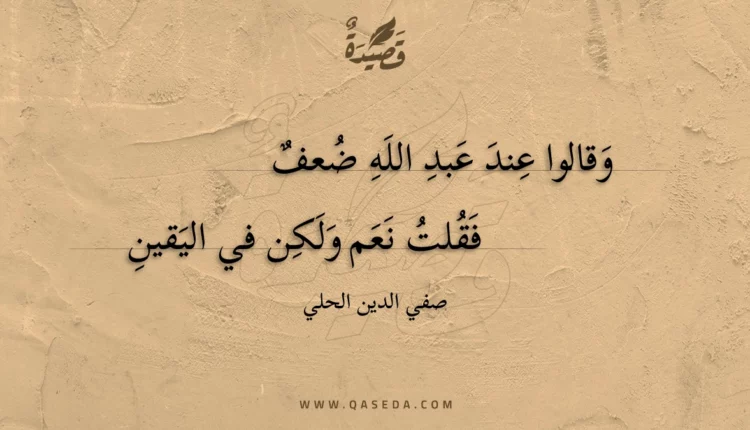 قَصِيدَةٌ
وَقالوا عِندَ عَبدِ اللَهِ ضُعفٌ
فَقُلتُ نَعَم وَلَكِن في اليَقينِ
صفي الدين الحلي
WWW.QASEDA.COM